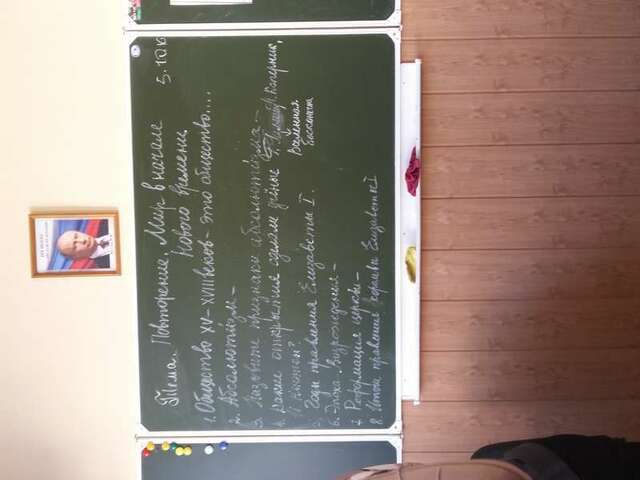 Тема. Повторение. Мир в начале
Нового времени.
5.10
1. Общество XV-XVIII веков - это общество....
2. Абсолютизм -
3. Назовите признаки абсолютизма -
4. Какие открытия сделали учёные Г. Н. Коперник,
И. Ньютон?
Вселенная
бесконечна
5. Годы правления Елизаветы I.
6. Эпоха Возрождения -
7. Реформация церкви -
8. Итоги правления королевы Елизаветы I